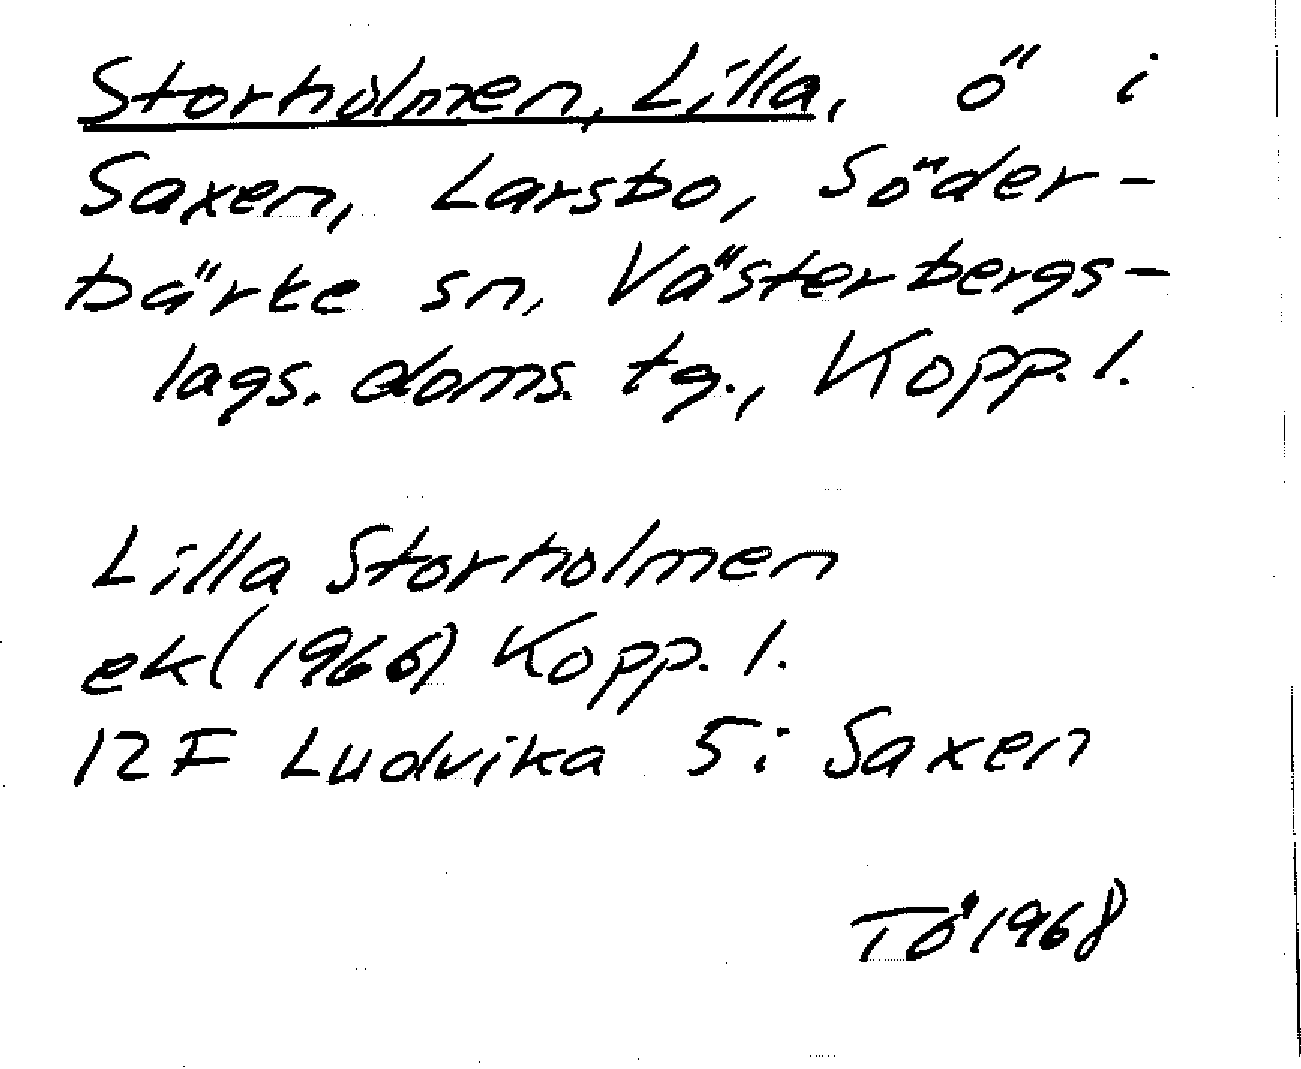 Storholmen, Lilla, ö i
Saxen, Larsbo, Söder-
bärke sn, Västerbergs-
lags. doms. tg., Kopp. l.
Lilla Storholmen
ek (1966) Kopp. l.
12F Ludvika 5i Saxen
TÖ 1968